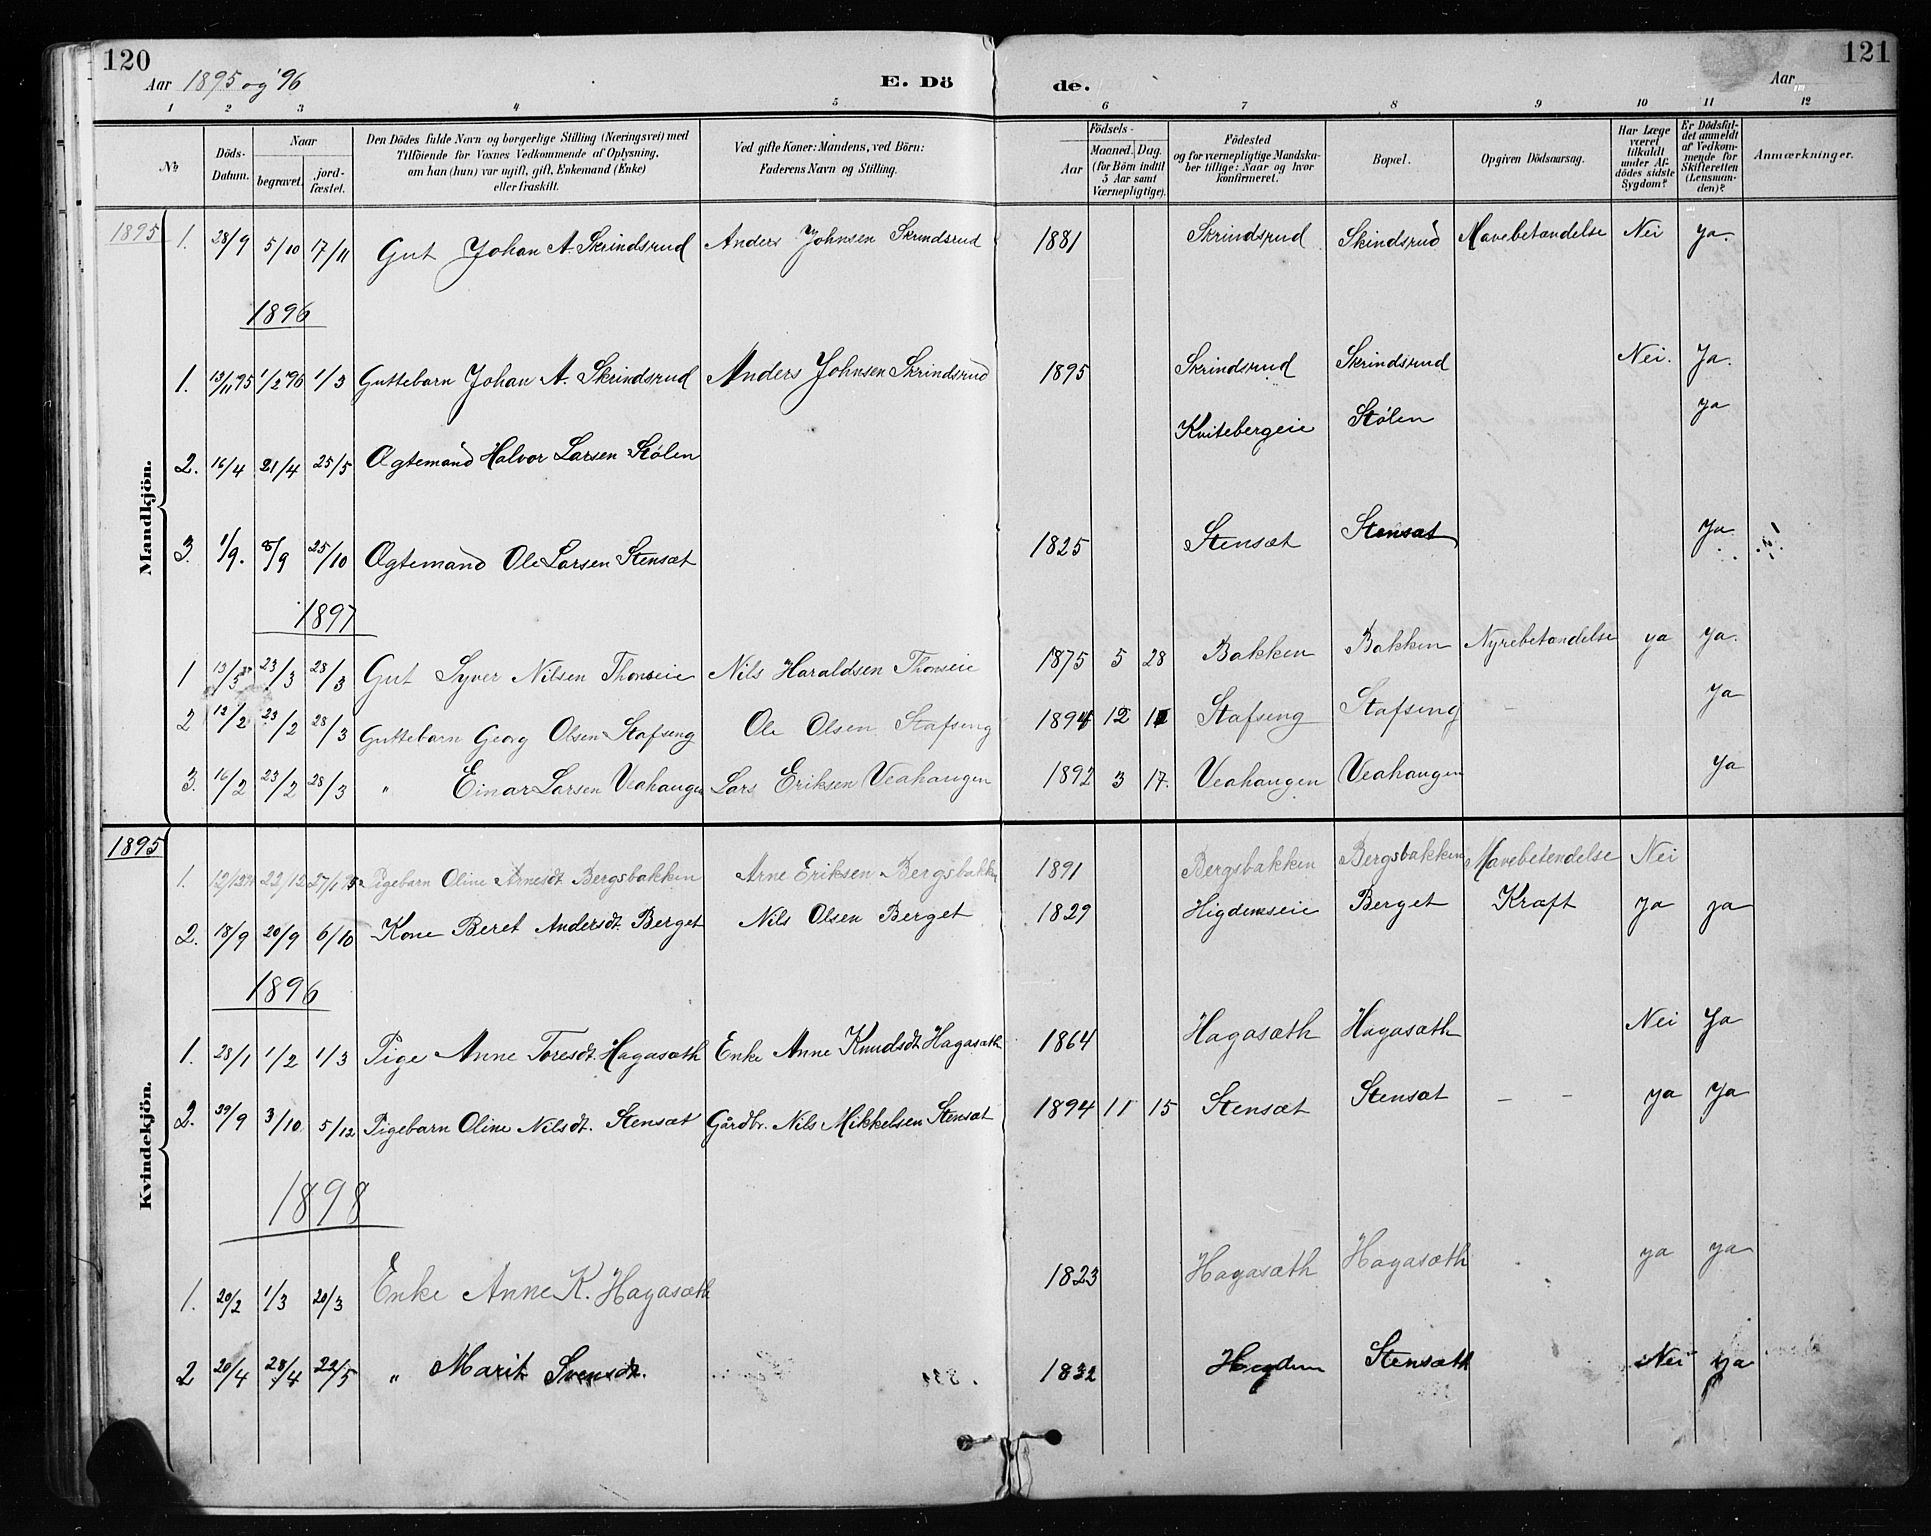 120
Aar 1895 og '96
E. Dö
de.
Aar
121
1 2 3 4 5 6 7 8 9 10 11 12
No
Döds-
Datum.
Naar
begravet.
jord-
fæstet.
Den Dödes fulde Navn og borgerlige Stilling (Næringsvei) med
Tilföiende for Voxnes Vedkommende af Oplysning,
om han (hun) var ugift, gift, Enkemand (Enke)
eller fraskilt.
Ved gifte Koner: Mandens, ved Börn:
Faderens Navn og Stilling.
Födsels-
Aar
Maaned. Dag.
(for Börn indtil
5 Aar samt
Værnepligtige).
Födested
og for værnepligtige Mandska-
ber tillige: Naar og hvor
konfirmeret.
Bopæl.
Opgiven Dödsaarsag.
Har Læge
været
tilkaldt
under Af-
dödes sidste
Sygdom?
Er Dödsfal-
det anmeldt
af Vedkom-
mende for
Skifteretten
(Lensman-
den)?
Anmærkninger.
Mandkjön.
1895 1. 28/9 5/10 17/11 Gut Johan A. Skrindsrud Anders Johnsen Skrindsrud 1881 Skrindsrud Skindsrud Mavebetændelse Nei Ja.
1896
1. 13/11 95 1/2 96 1/3 Guttebarn Johan A. Skrindsrud Anders Johnsen Skrindsrud 1895 Skrindsrud Skrindsrud Nei. Ja.
2. 16/4 21/4 25/5 Ægtemand Halvor Larsen Stølen Kvitebergeie Stølen ja
3. 1/9. 8/9 25/10 Ægtemand Ole Larsen Stensæt 1825 Stensæt Stensæt Ja.
1897
1 13/3 23/3 28/3 Gut Syver Nilsen Thonseie Nils Haraldsen Thonseie 1875 5 28 Bakken Bakken Nyrebetændelse ja ja.
2 12/2 23/2 28/3 Guttebarn Georg Olsen Stafseng Ole Olsen Stafseng 1894 12 Stafseng Stafseng Ja
3. 16/2 23/2 28/3 " Einar Larsen Veahaugen Lars Eriksen Veahaugen 1892 3 17. Veahaugen Veahaugen Ja
Kvindekjön.
1895
1. 12/12 22/12 27/1 95 Pigebarn Oline Arnesdt. Bergsbakken Arne Eriksen Bergsbakken 1891 Bergsbakken Bergsbakken Mavebetendelse Nei
2. 18/9 20/9 6/10 Kone Beret Andersdt. Berget Nils Olsen Berget 1829 Higdemseie Berget Kræft Ja ja
1896
1. 28/1 1/2 1/3 Pige Anne Toresdt. Hagasæth Enke Anne Knudsdt. Hagasæth 1864 Hagasæth Hagasæth Nei Ja
2. 30/9 3/10 5/12 Pigebarn Oline Nilsdt. Stensæt Gårdbr. Nils Mikkelsen Stensæt 1894 11 15 Stensæt Stensæt - - ja Ja
1898
1. 20/2 1/3 20/3 Enke Anne K. Hagasæth 1823 Hagasæth Hagasæth ja ja
2 20/4 28/4 22/5 " Marit Svensdt. 1832 Hegdem Stensæth Nei ja